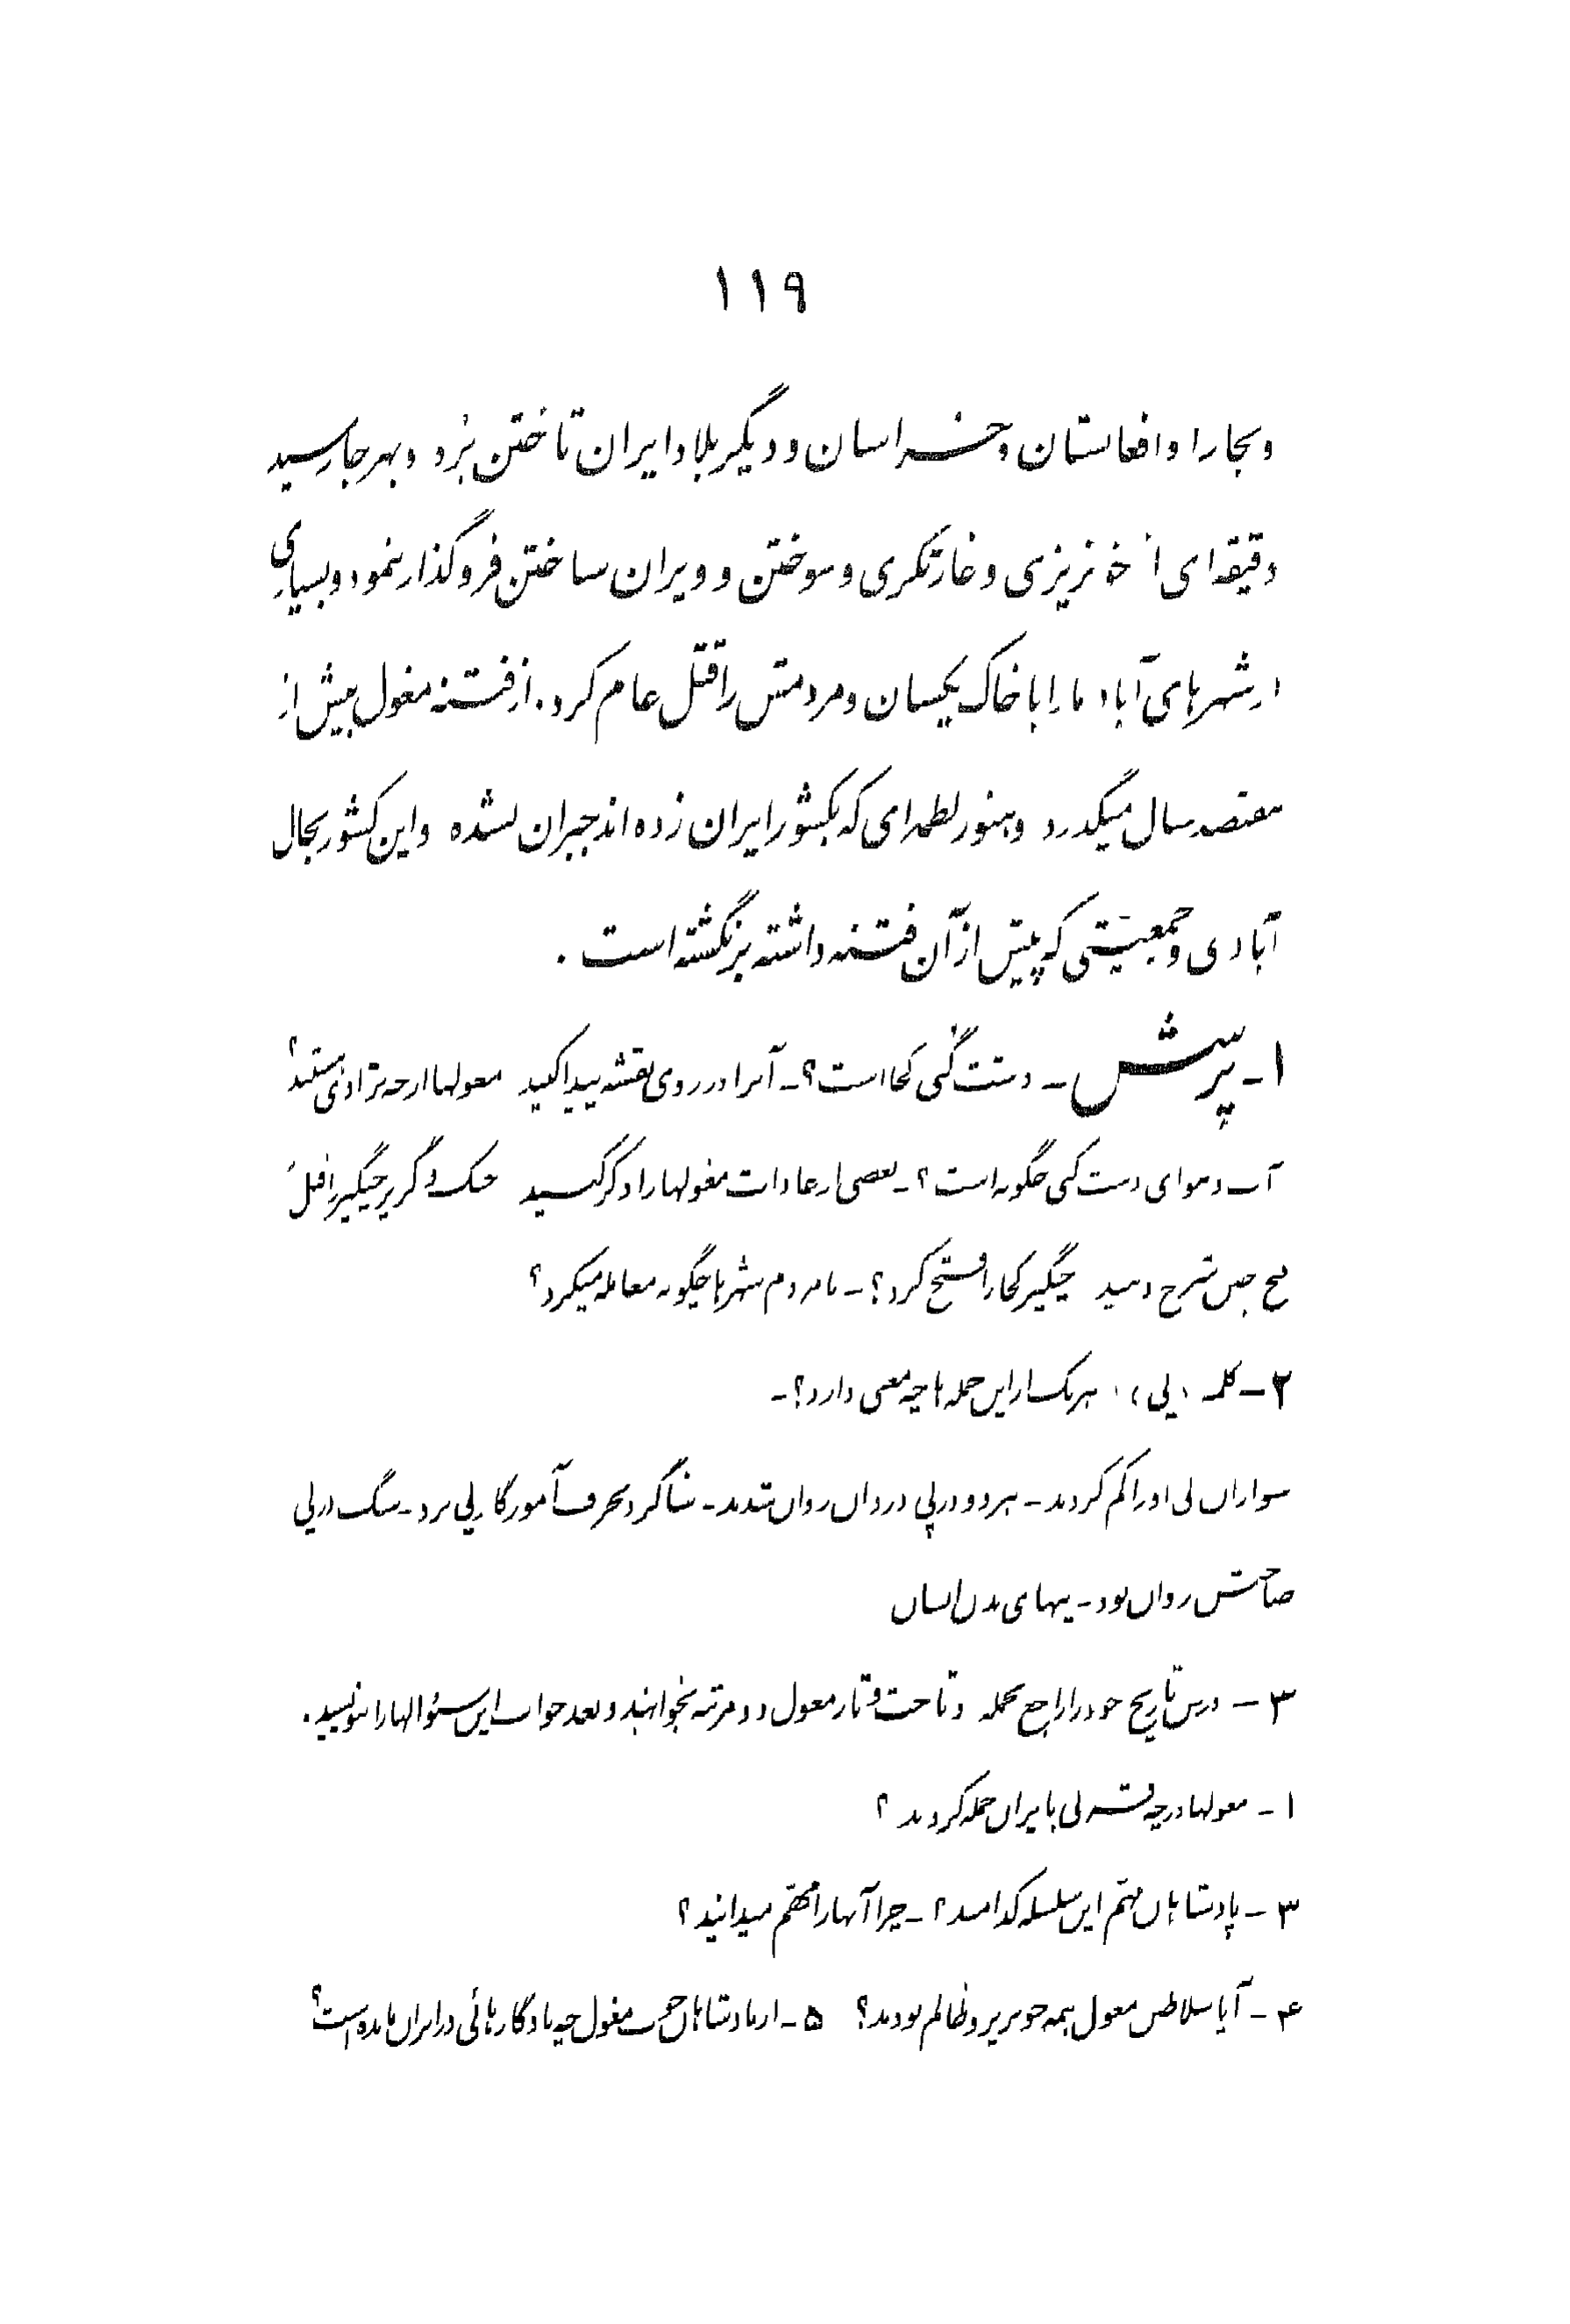 ۱۱۹
و بخارا و افغانستان و خراسان و دیگر بلاد ایران تاختن برد و بهر جا رسید
دقیقه‌ای از خونریزی و غارتگری و سوختن و ویران ساختن فروگذار ننمود و بسیاری
از شهرهای آباد ما را با خاک یکسان و مردمش را قتل عام کرد. از فتنه مغول بیش از
هفتصد سال میگذرد و هنوز لطمه‌ای که بکشور ایران زده‌اند جبران نشده و این کشور بحال
آبادی و جمعیتی که پیش از آن فتنه داشته بر نگشته است .
۱ - پرسش - دشت گبی کجا است؟ - آنرا در روی نقشه پیدا کنید مغولها از چه نژادی هستند؟
آب و هوای دشت گبی چگونه است؟ - بعضی از عادات مغولها را ذکر کنید جنگ و گریز چنگیز را قبل از
فتح چین شرح دهید چنگیز کجا را فتح کرد؟ - با مردم شهرها چگونه معامله میکرد؟
۲ - کلمه (پی) هر یک از این جمله‌ها چه معنی دارد؟ -
سواران پی او را گم کردند - هر دو در پی دزدان روان شدند - شاگرد بحرف آموزگار پی برد - سگ در پی
صاحبش روان بود - پیهای بدن انسان
۳ - درس تاریخ خود را راجع بحمله و تاخت و تاز مغول دو مرتبه بخوانید و بعد جواب این سئوالها را بنویسید.
۱ - مغولها در چه قرنی بایران حمله کردند ؟
۳ - پادشاهان مهم این سلسله کدامند ؟ - چرا آنها را مهم میدانید ؟
۴ - آیا سلاطین مغول همه خونریز و ظالم بودند؟ ۵ - از پادشاهان خوب مغول چه یادگارهائی در ایران مانده است؟